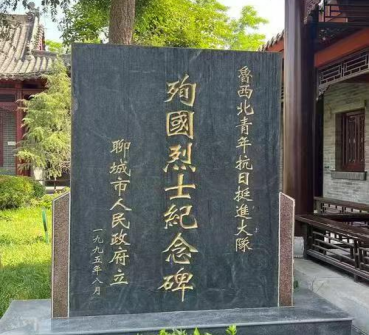 魯西北青年抗日挺進大隊
殉國烈士紀念碑
聊城市人民政府立
一九九五年八月